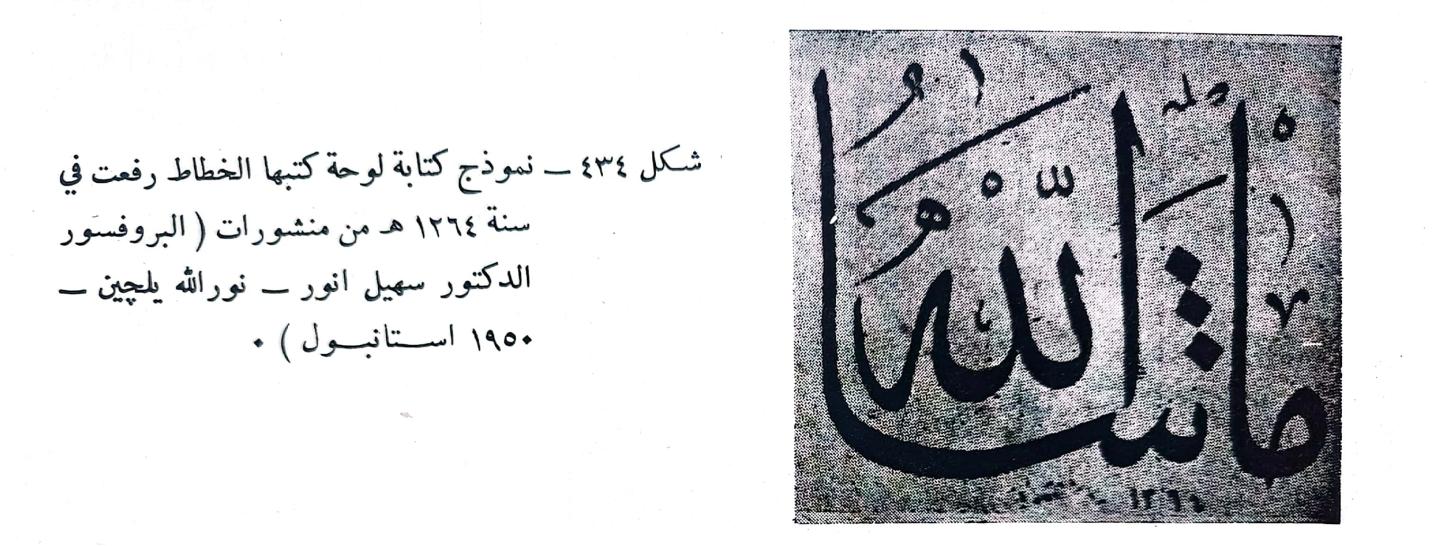 شكل ٤٣٤ ــ نموذج كتابة لوحة كتبها الخطاط رفعت في
سنة ١٢٦٤ هـ من منشورات ( البروفسور
الدكتور سهيل انور ــ نورالله يلچين ــ
١٩٥٠ استانبول ) ٠
ما شاء الله